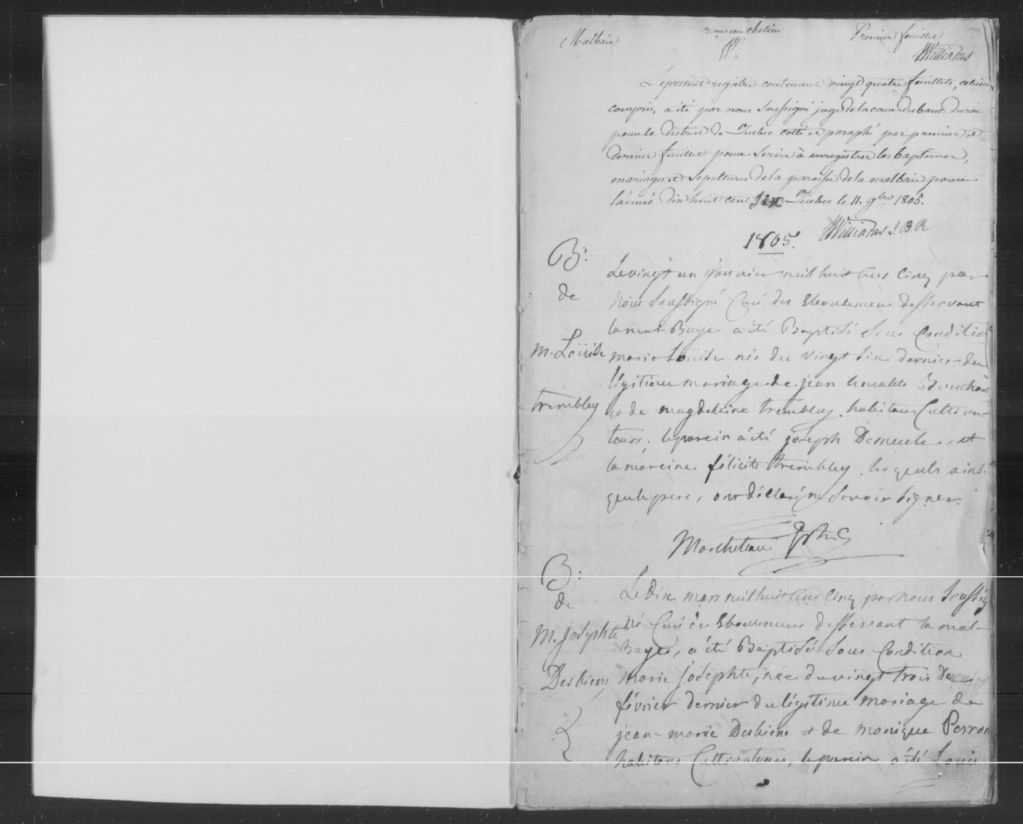 Malbaie Premier feuillet
Williams
Le present registre contenant vingt quatre feuillets, celui ci
compris, a été par nous soussigné juge de la cour du banc du roi
pour le district de Quebec cotté et paraphé par premier et
dernier feuillet pour servir à enregistrer les baptemes,
mariages et sepultures de la paroisse de la malbaie pour
l'année dix huit cent Six Quebec le 11. 9bre 1805.
Williams J B R
1805.
B.
de
M. Loüise
trembley
Le vingt un janvier mil huit cens cinq par
Nous soussigné Curé des Eboulemens desservant
la mal Baye a été Baptisé sous Condition
marie Loüise née du vingt six dernier du
légitime mariage de jean
et de magdeleine trembley, habitans Cultiva-
teurs. le parein a été joseph Demeule, et
la mareine félicité trembley, les quels ains
que le pere, ont déclaré ne savoir signer.
Marcheteau ptre
B:
de
M. josephte
Desbiens
Le dix mars mil huit cens cinq par nous Soussig
né Curé des Eboulemens desservant la mal-
Baye, a été Baptisé sous Condition
marie josephte, née du vingt trois de
février dernier du légitime mariage de
jean-marie Desbiens et de monique Perron
habitans Cultivateurs, le parein a été Louis